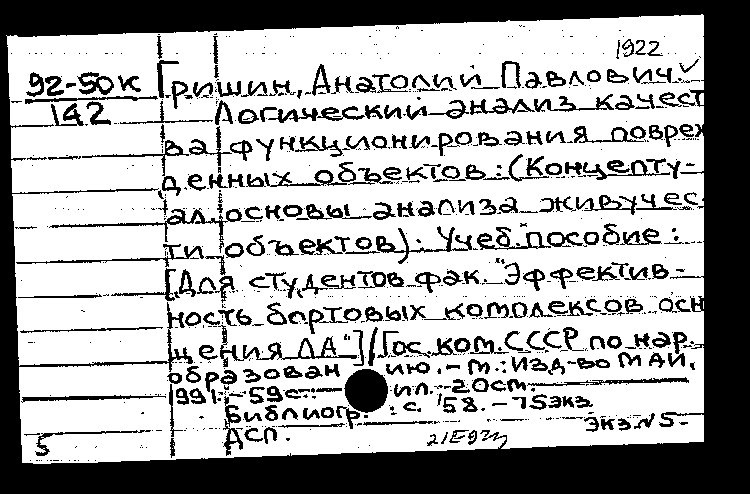 1922
92-50к Гришин, Анатолий Павлович.
142 Логический анализ качест
ва функционирования повреж
денных объектов: (Концепту-
ал. основы анализа живучес
ти объектов): Учеб. пособие:
[Для студентов фак. "Эффектив-
ность бортовых комплексов осн
щения ЛА"]/Гос. ком. СССР по нар.
образован ию.-М.: Изд-во МАИ,
1991.-59с.: ил.-20см.
Библиогр.: с. 58.-75экз
ДСП. экз.№5-
5